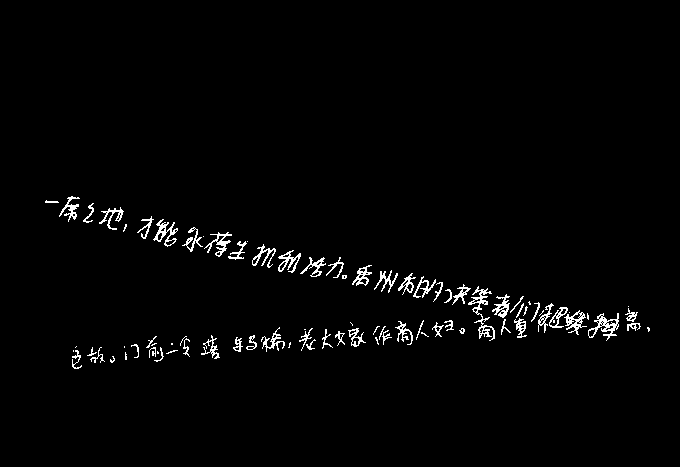 一席之地，才能永葆生机和活力。禹州市的决策者们
色故。门前冷落车马稀，老大嫁作商人妇。商人重